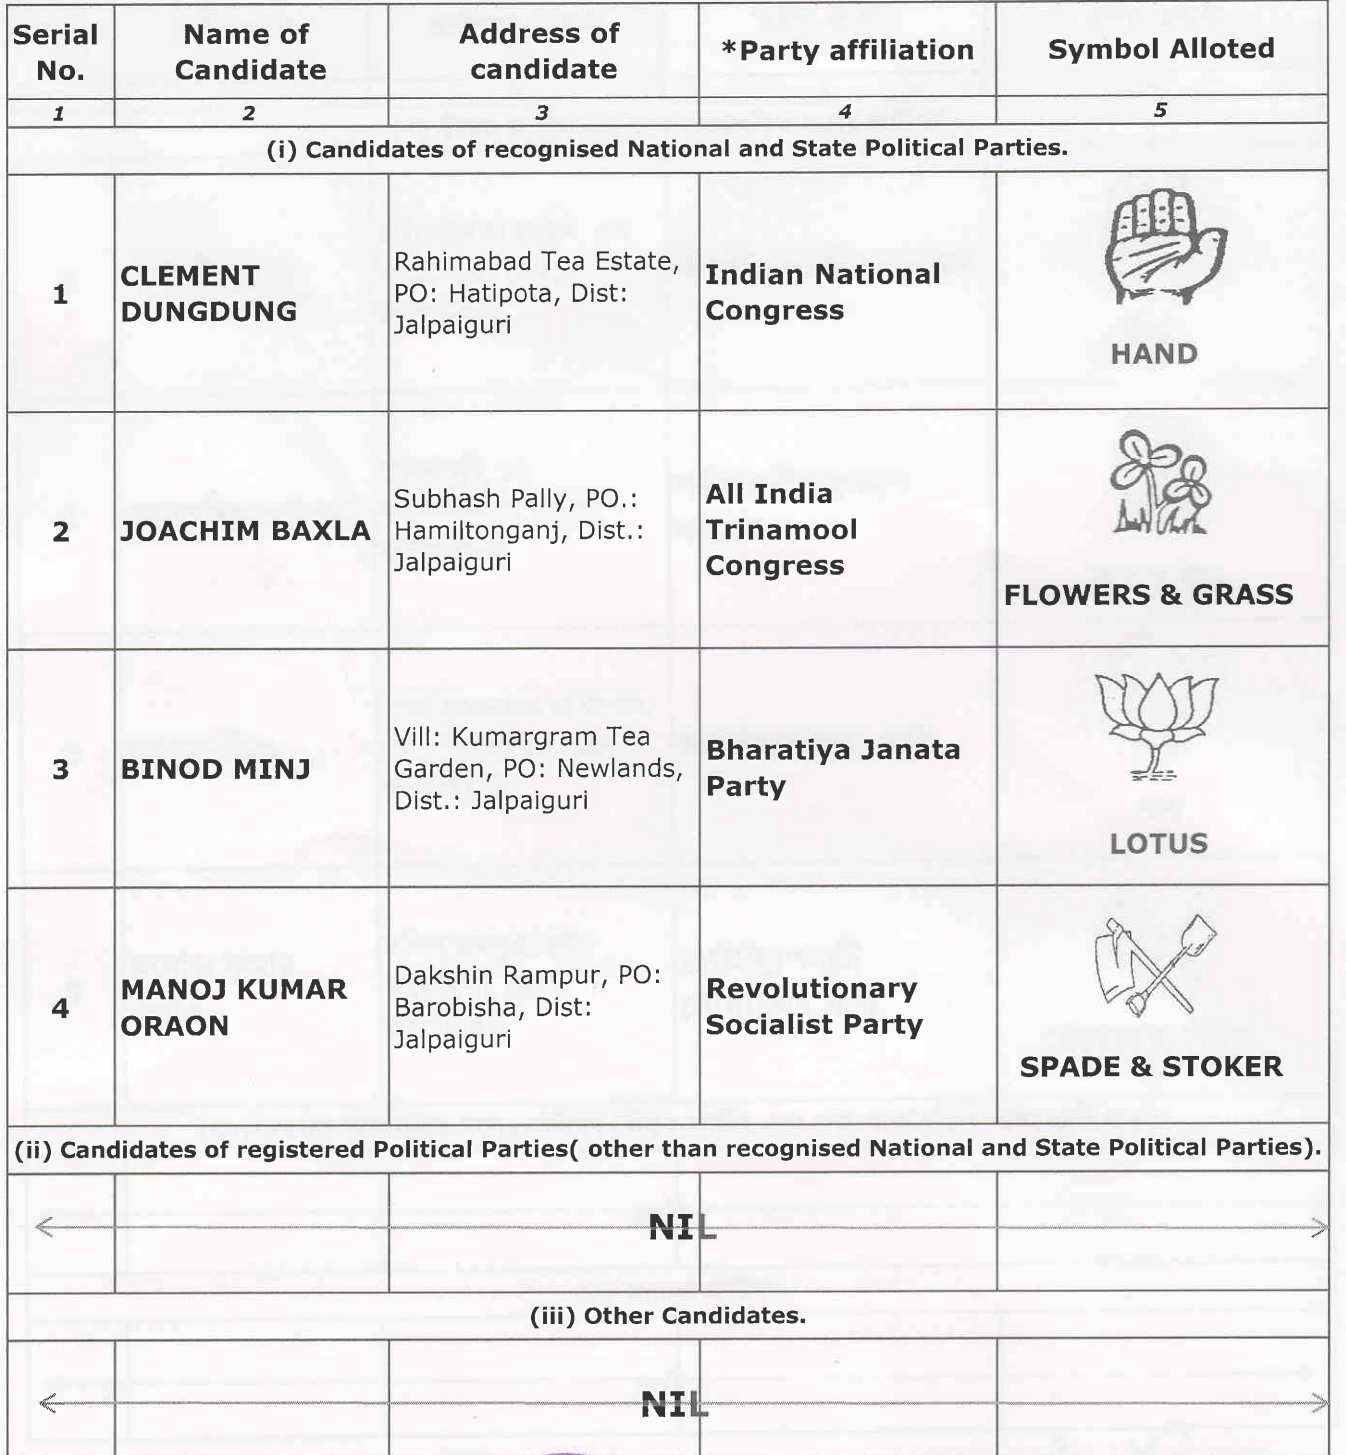 Serial No.
Name of Candidate
Address of candidate
*Party affiliation
Symbol Alloted
1
2
3
4
5
(i) Candidates of recognised National and State Political Parties.
1
CLEMENT
DUNGDUNG
Rahimabad Tea Estate,
PO: Hatipota, Dist:
Jalpaiguri
Indian National
Congress
HAND
2
JOACHIM BAXLA
Subhash Pally, PO.:
Hamiltonganj, Dist.:
Jalpaiguri
All India
Trinamool
Congress
FLOWERS & GRASS
3
BINOD MINJ
Vill: Kumargram Tea
Garden, PO: Newlands,
Dist.: Jalpaiguri
Bharatiya Janata
Party
LOTUS
4
MANOJ KUMAR
ORAON
Dakshin Rampur, PO:
Barobisha, Dist:
Jalpaiguri
Revolutionary
Socialist Party
SPADE & STOKER
(ii) Candidates of registered Political Parties( other than recognised National and State Political Parties).
NIL
(iii) Other Candidates.
NIL